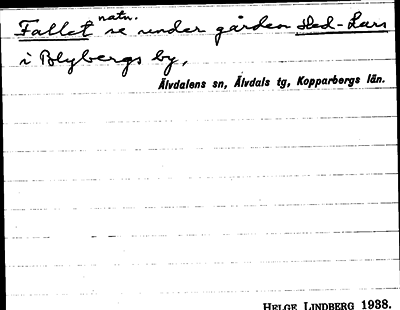 Fallet natn. se under gården Hed-Lars
i Blybergs by,
Älvdalens sn, Älvdals tg, Kopparbergs län.
HELGE LINDBERG 1938.